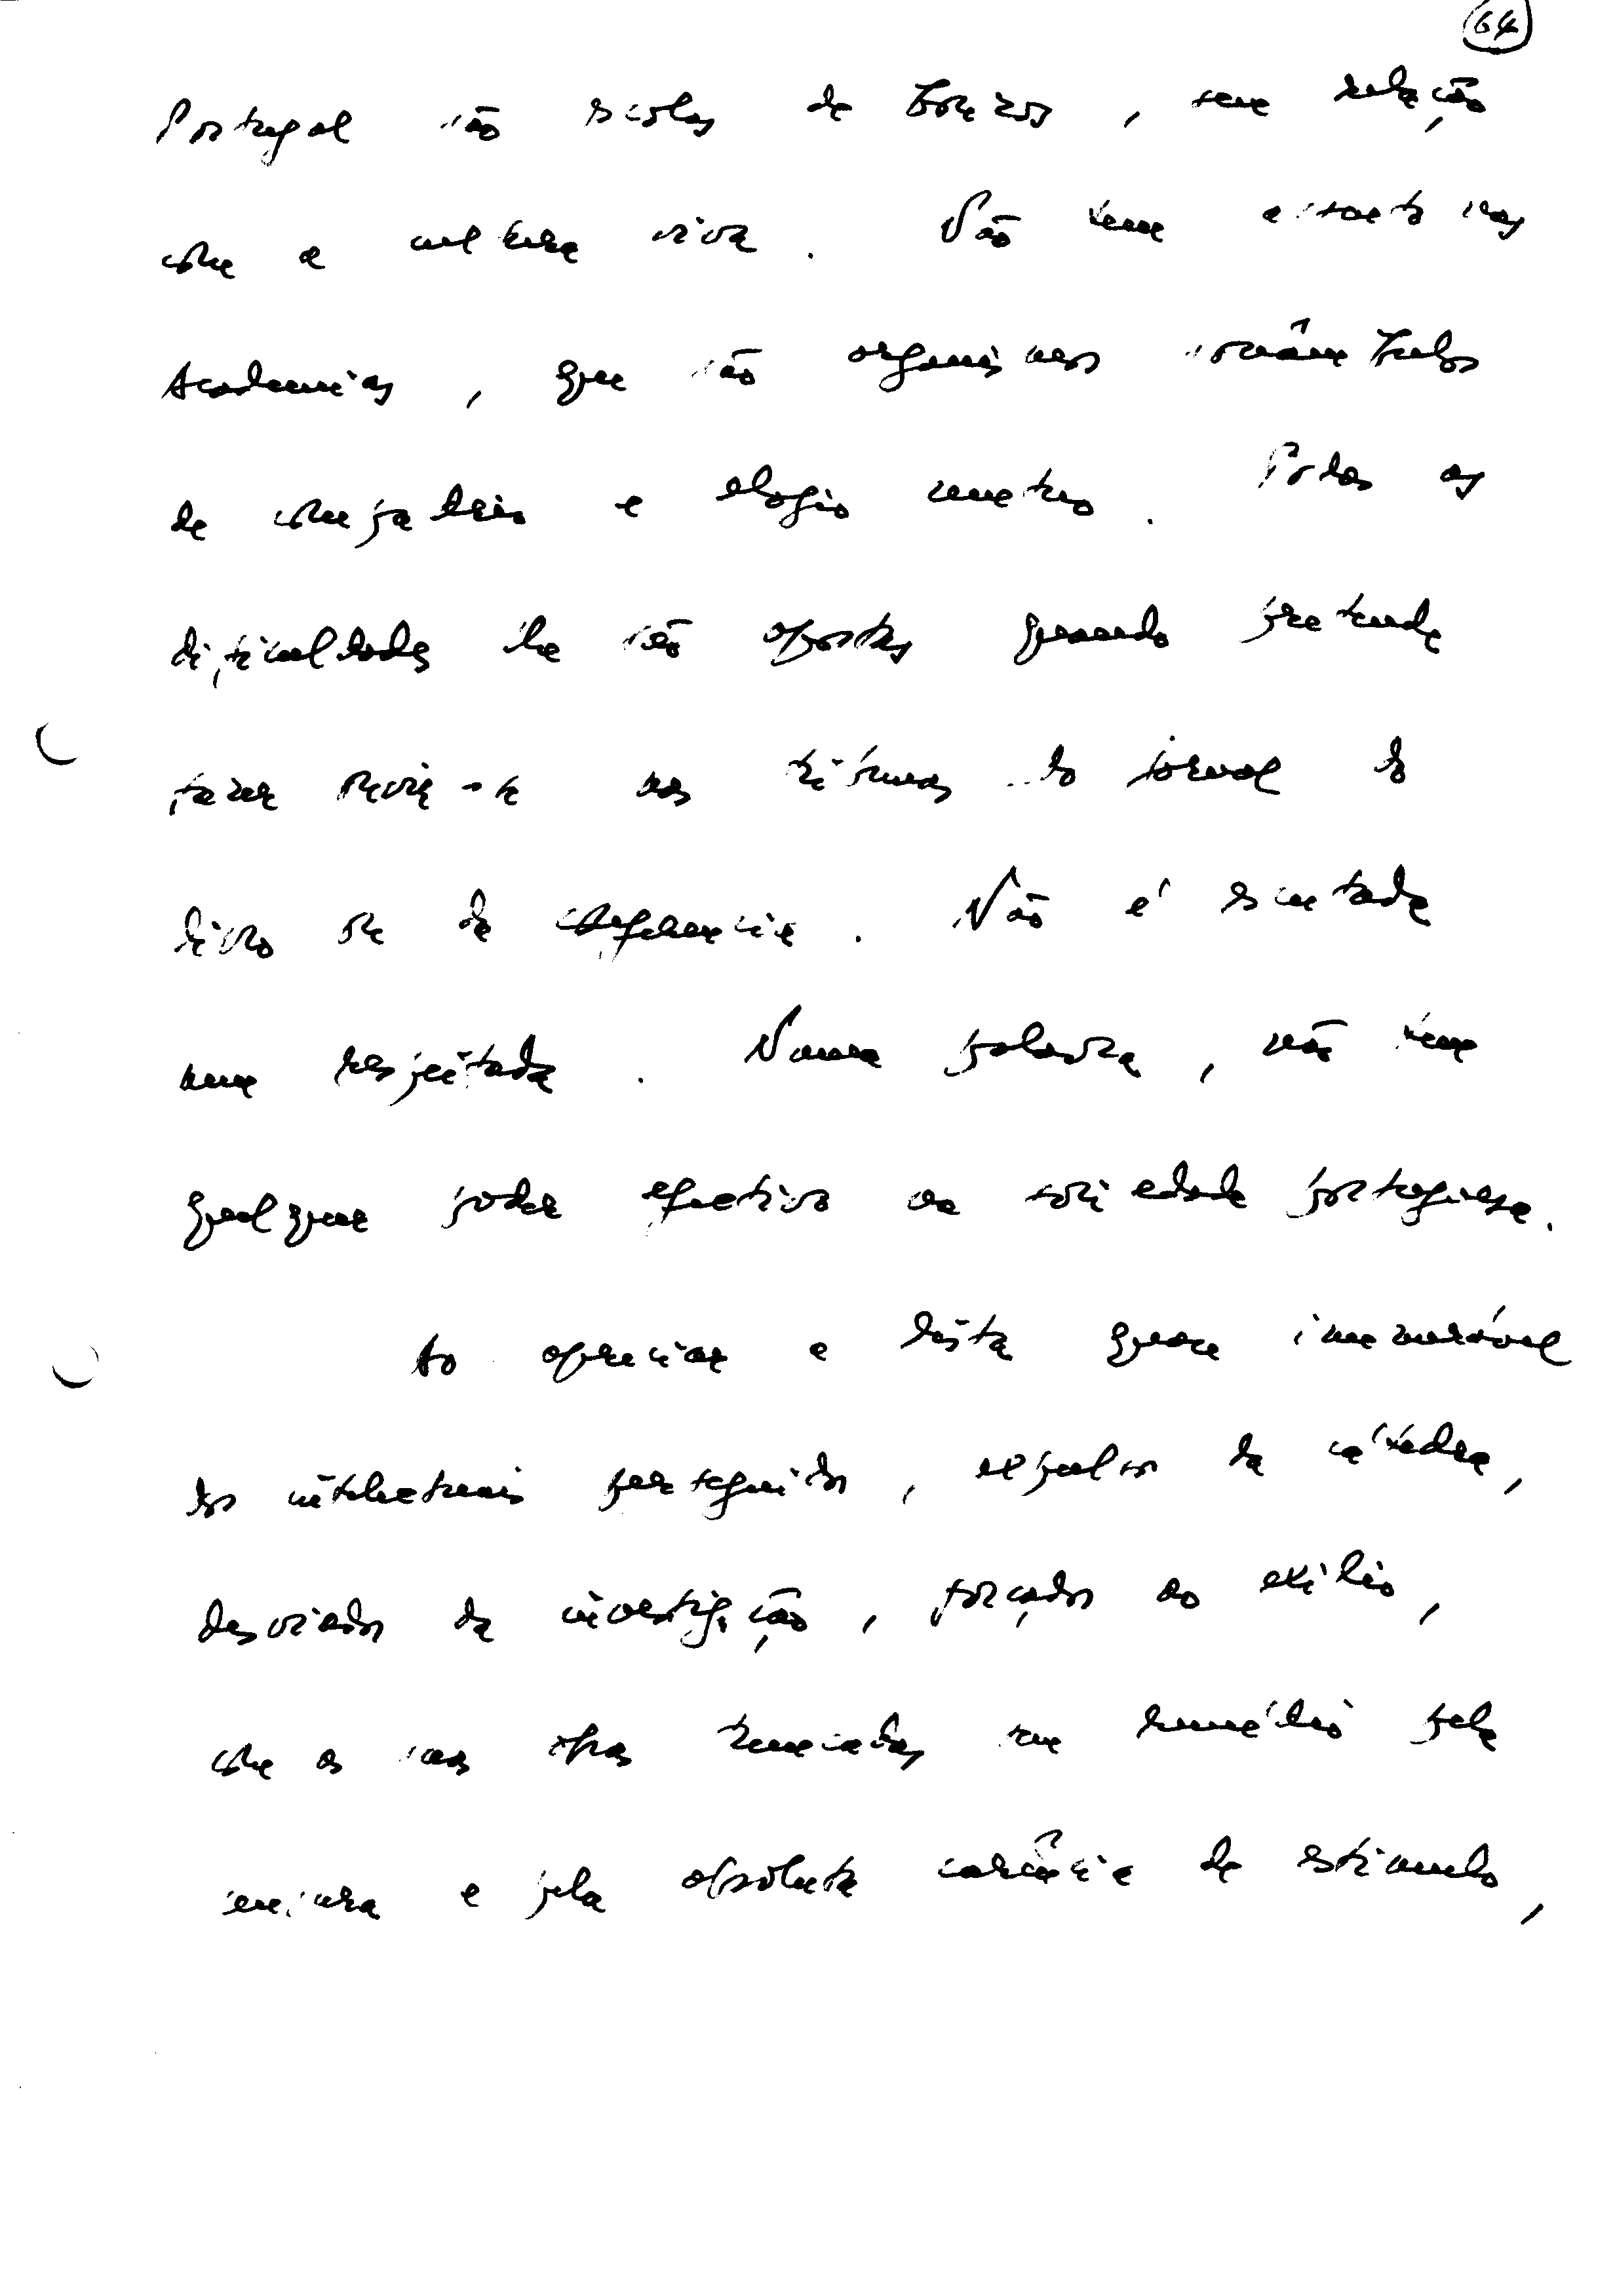 64
Portugal são escolas de , sem relação
com a cultura viva. Não tem assento nas
Academias, que são organismos sonâmbulos
de compadrio e elogio mútuo. Todas as
dificuldades lhe são opostas quando pretende
fazer ouvir-se nas tribunas do jornal do
livro ou da conferência. Não é escutada
nem respeitada. Numa palavra, não tem
qualquer poder efectivo na sociedade portuguesa.
Ao apreciar a lista quase inumerável
dos intelectuais perseguidos, expulsos da cátedra,
desviados da investigação, forçados ao exílio,
com as suas obras truncadas sem remédio pela
censura e pela absoluta carência de estímulo,